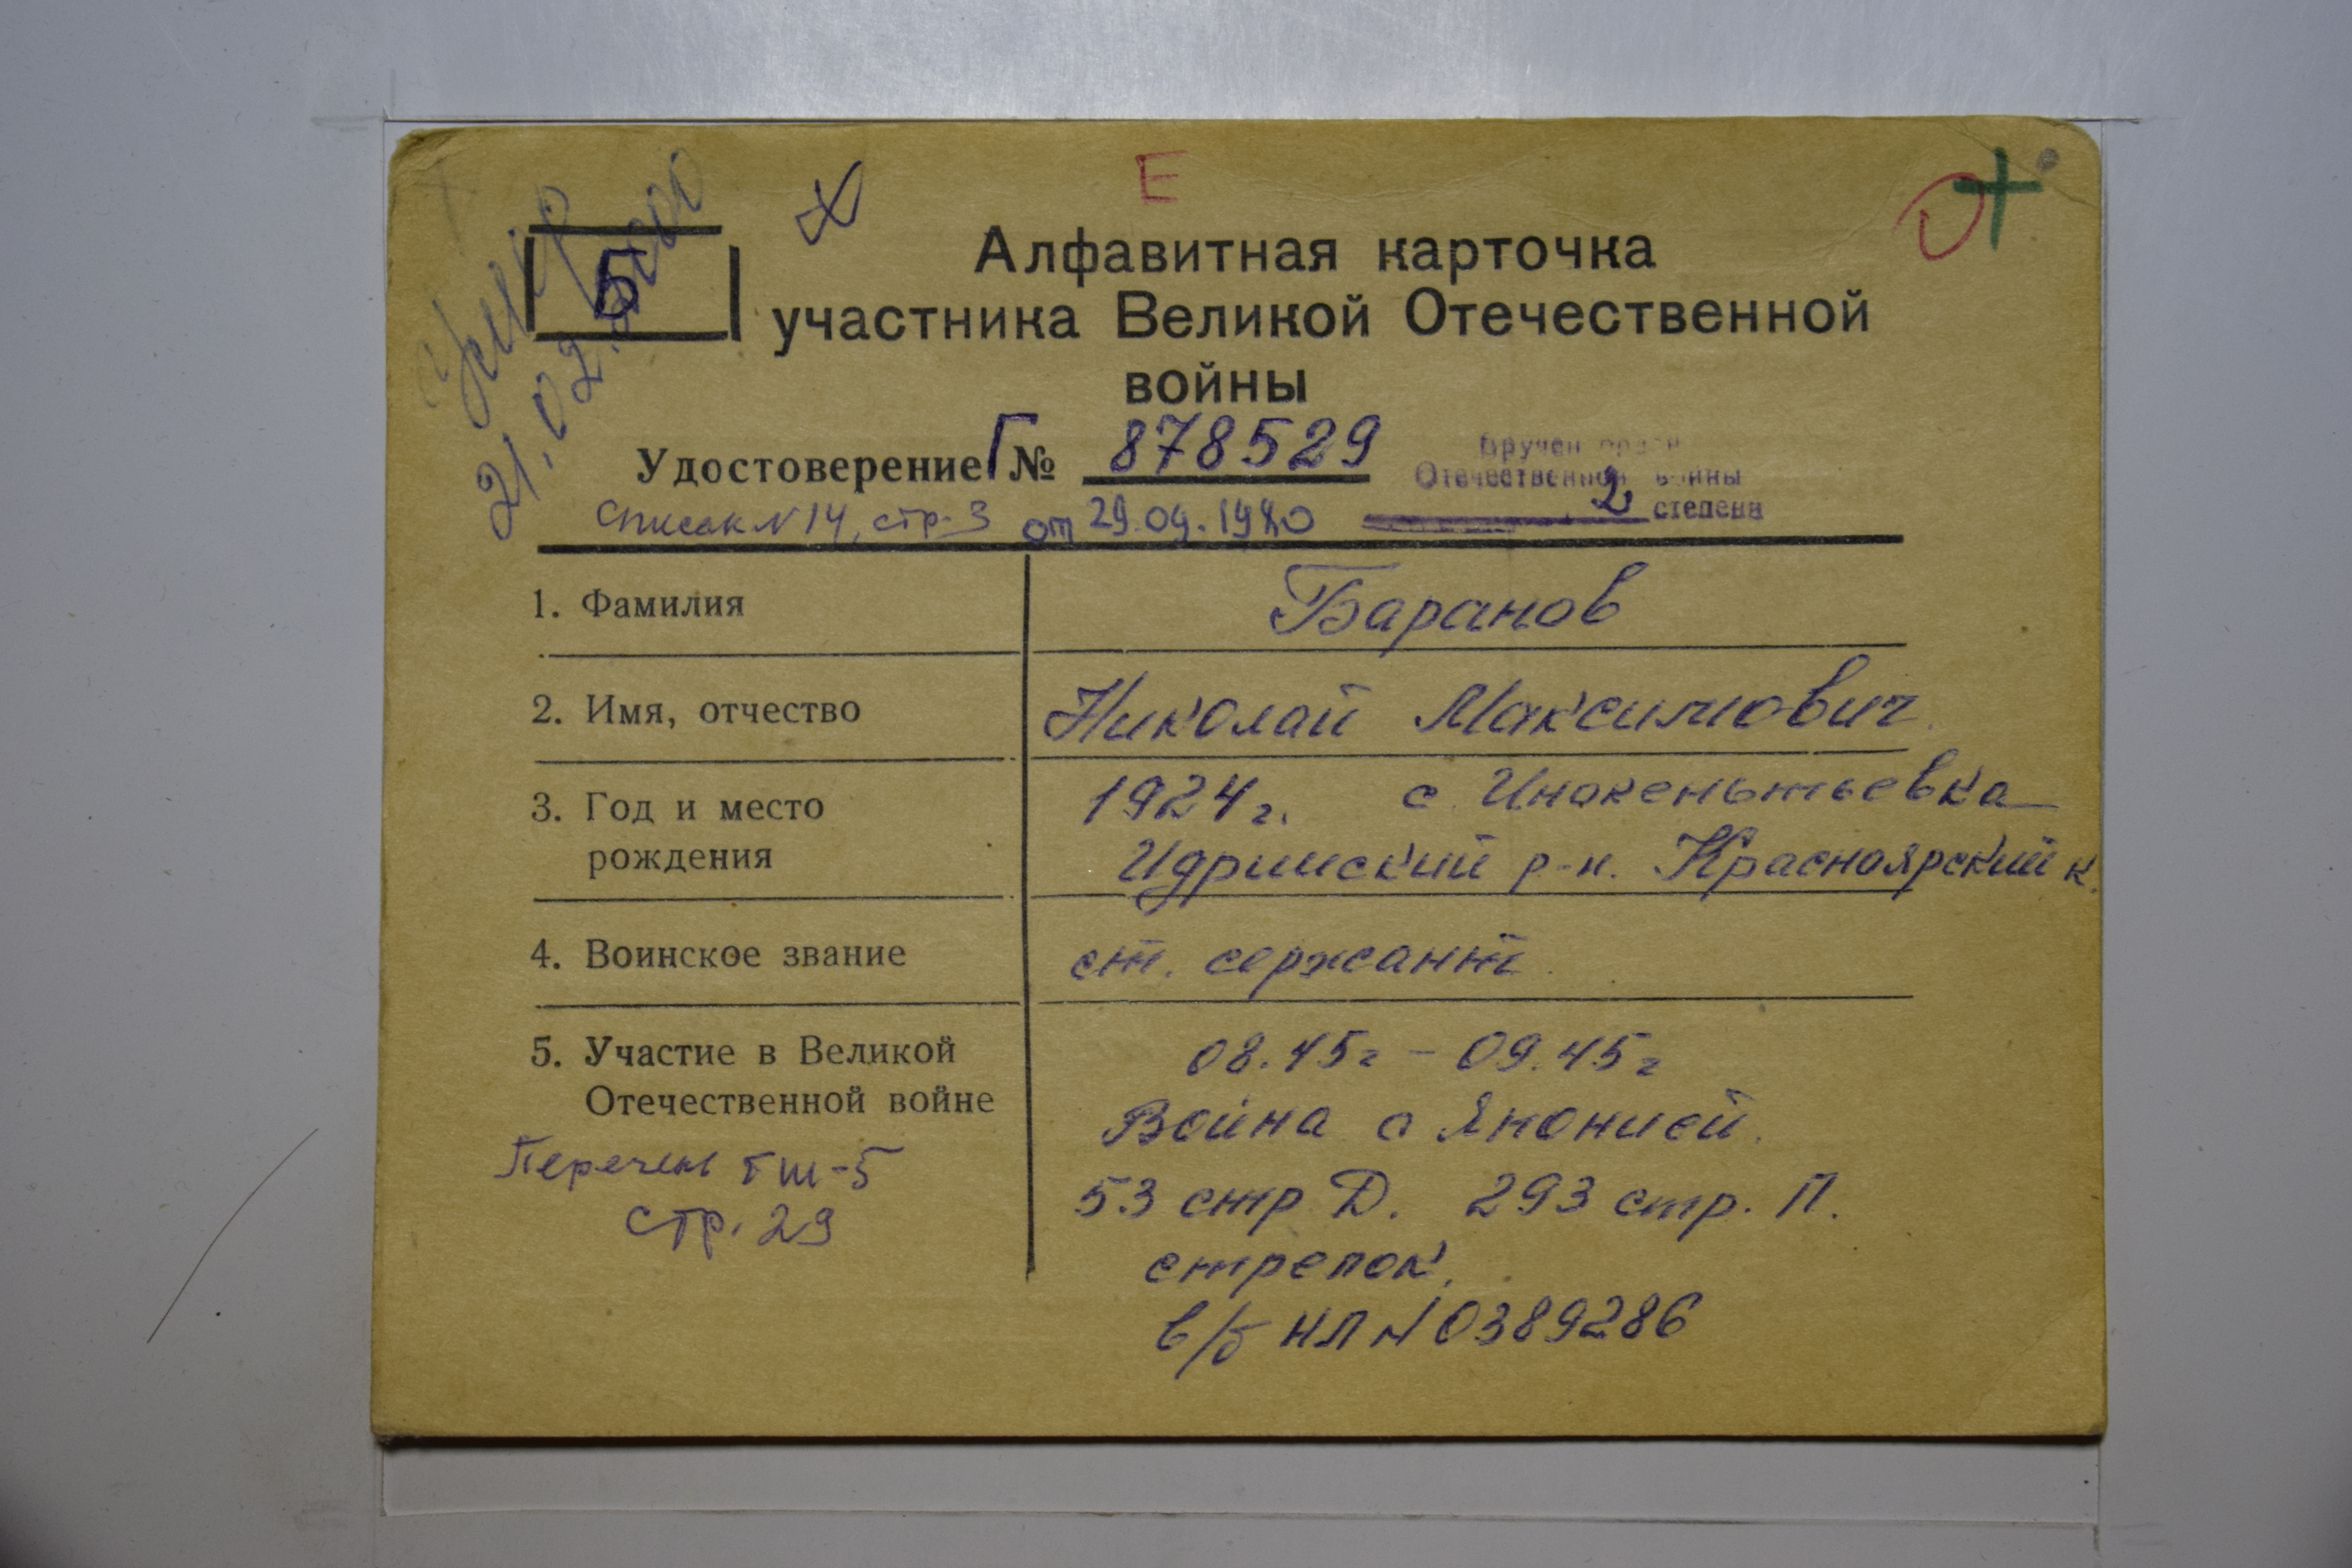 Е
Умер
21.02.2000
5
Алфавитная карточка
участника Великой Отечественной
войны
Удостоверение Г № 878529
Вручен орден
Отечественной войны
2 степени
Список N 14, стр. 3 от 29.09.1980
1. Фамилия
Баранов
2. Имя, отчество
Николай Максимович
3. Год и место
рождения
1924 г. с. Инокеньтьевка
Идринский р-н. Красноярский к.
4. Воинское звание
ст. сержант.
5. Участие в Великой
Отечественной войне
08.45г – 09.45г
Война с Японией.
53 стр Д. 293 стр. П.
стрелок.
в/б НЛ N 0389286
Перечень ГШ-5
стр. 29